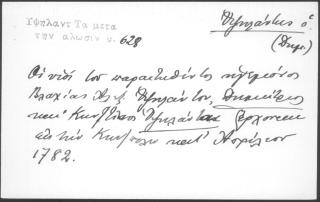 Υψηλαντ Τα μετα
την αλωσιν σ. 628
Ὑψηλάντης ὁ
(Δημ.)
Οἱ υἱοὶ τοῦ παραιτηθέντος ἡγεμόνος
Βλαχίας Ἀλ. Ὑψηλάντου, Δημήτριος
καὶ Κωνστῖνος Ὑψηλάνται ἔρχονται
εἰς τὴν Κωνπολιν κατ' Ἀπρίλιον
1782.